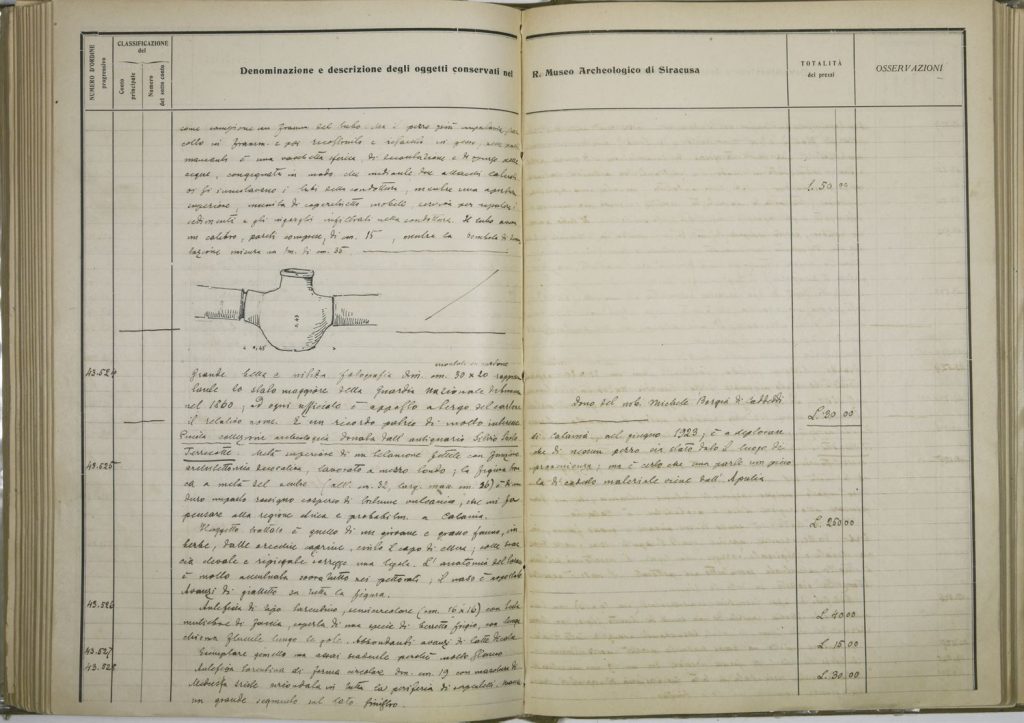 NUMERO D'ORDINE progressivo
CLASSIFICAZIONE del
Conto principale
Numero del sotto conto
Denominazione e descrizione degli oggetti conservati nel R. Museo Archeologico di Siracusa
TOTALITÀ dei prezzi
OSSERVAZIONI
come campione un framm. del tubo. Ma il pezzo più importante,
colto in framm. e poi ricostruito e rifatto in gesso, nelle parti
mancanti è una vaschetta sferica, di decantazione e di spurgo delle
acque, congegnata in modo che mediante due attacchi
si innestavano i tubi della conduttura, mentre una apertura
superiore, munita di coperchietto mobile, serviva per
sedimenti e gli infiltrati nella conduttura. Il tubo
un calibro, di cm. 15, mentre la
misura un dm. di cm. 35
L. 50 00
0,45
43.524
montata su cartone
Grande bella e nitida fotografia dim. cm. 30 x 20
lo stato maggiore della Guardia Nazionale di
nel 1860; ad ogni ufficiale è apposto a tergo del cartone
il relativo nome. È un ricordo patrio di molto interesse
Dono del nob. Michele Borgia di
L. 20 00
Piccola collezione archeologica donata dall'antiquario Silvio
di Catania, nel giugno 1923; è a deplorare
Terrecotte.
che di nessun pezzo sia stato dato il luogo di
provenienza; ma è certo che una parte
la di codesto materiale viene dall'Apulia
43.525
Metà superiore di un Telamone fittile con funzione
architettonica decorativa, lavorato a mezzo tondo; la figura
ca a metà del ventre (alt. cm. 32, larg. mass. cm. 26) è di un
duro impasto rossigno cosparso di tritume vulcanico, che mi fa
pensare alla regione etnea e probabilm. a Catania.
L. 250 00
Il soggetto trattato è quello di un giovane e grasso fauno, im-
berbe, dalle orecchie caprine, cinto il capo di ellera; colle brac-
cia elevate e ripiegate L'anatomia del torso
è molto accentuata sovratutto nei pettorali; il naso è
Avanzi di su tutta la figura.
43.526
Antefissa di tipo tarentino, semicircolare (cm. 16 x 16) con testa
muliebre di faccia, coperta di una specie di berretto frigio, con lunga
chioma fluente lungo le gote. Abbondanti avanzi di latte di calce
L. 40.00
43.527
Esemplare gemello ma assai
L. 15.00
43.528
Antefissa tarentina di forma circolare dm. cm. 19 con
Medusa circondata in tutta la periferia di
un grande segmento sul lato sinistro.
L. 30.00